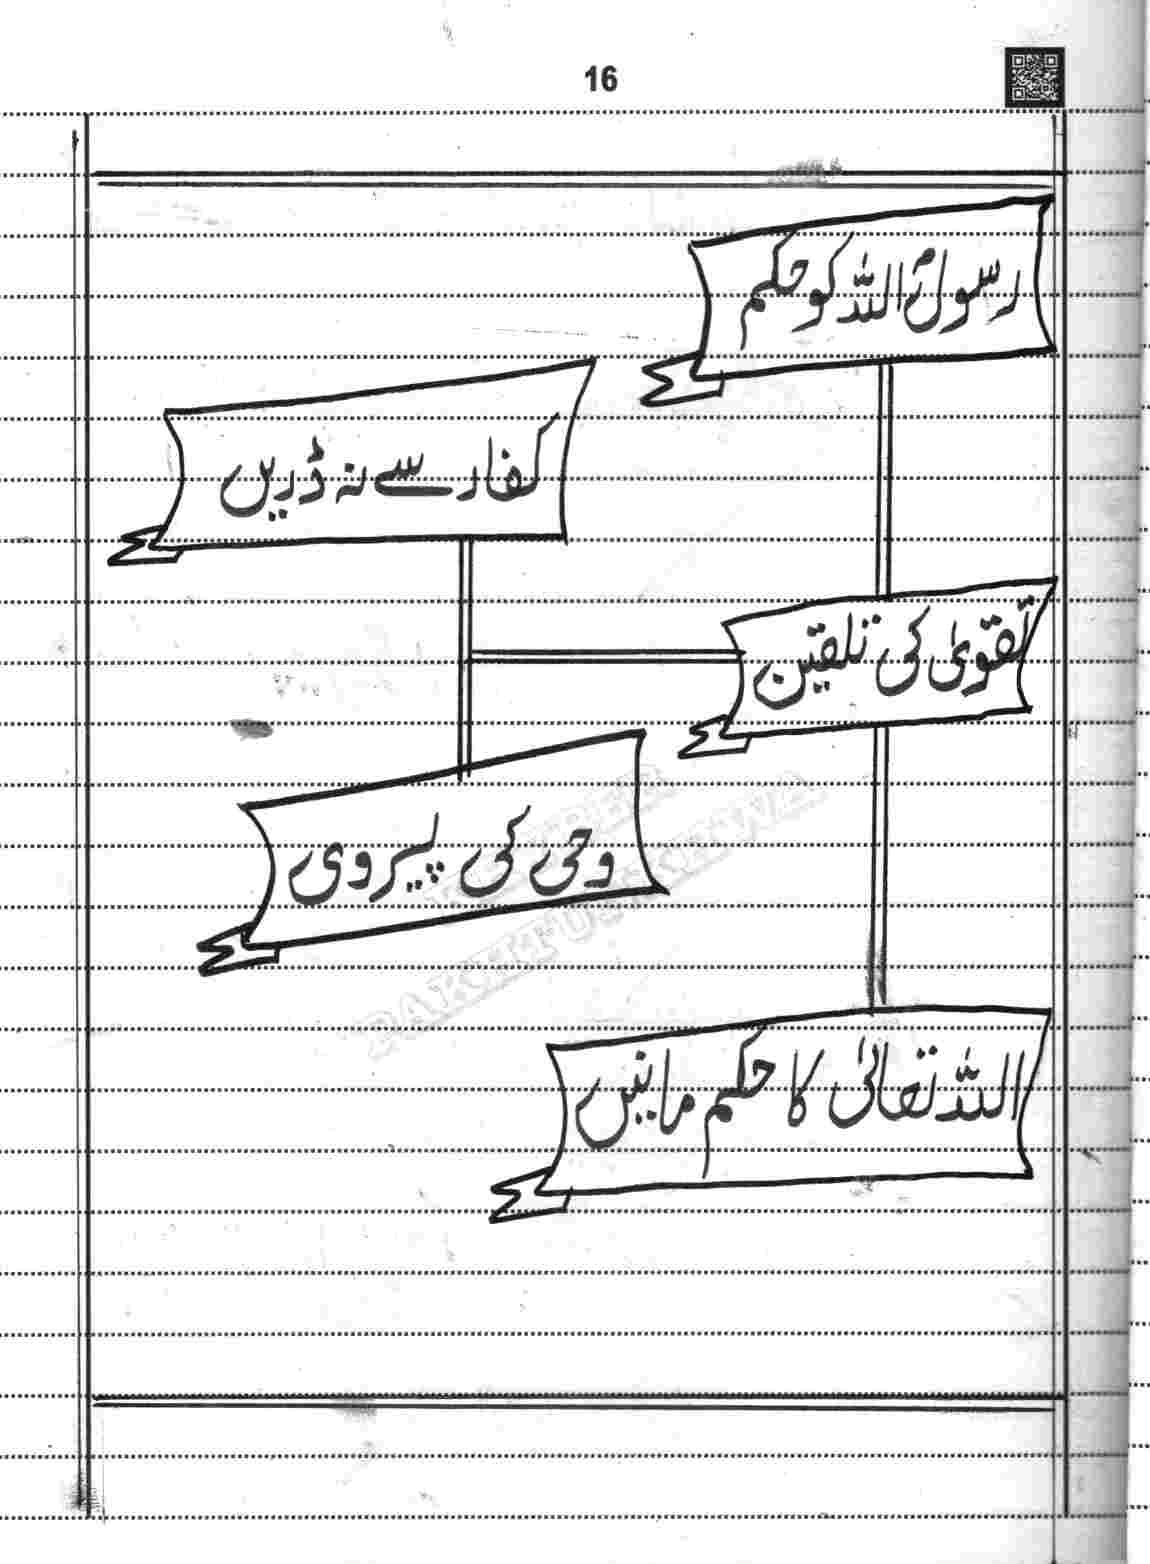 16
رسولؐ اللہ کو حکم
کفار سے نہ ڈریں
تقویٰ کی تلقین
وحی کی پیروی
اللہ تعالیٰ کا حکم مانیں
PAKHTUNKHWA